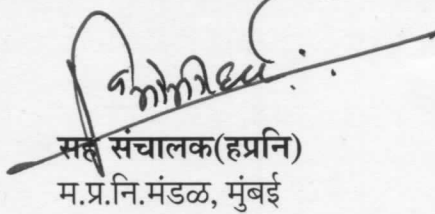 सह संचालक(हप्रनि)
म.प्र.नि.मंडळ, मुंबई